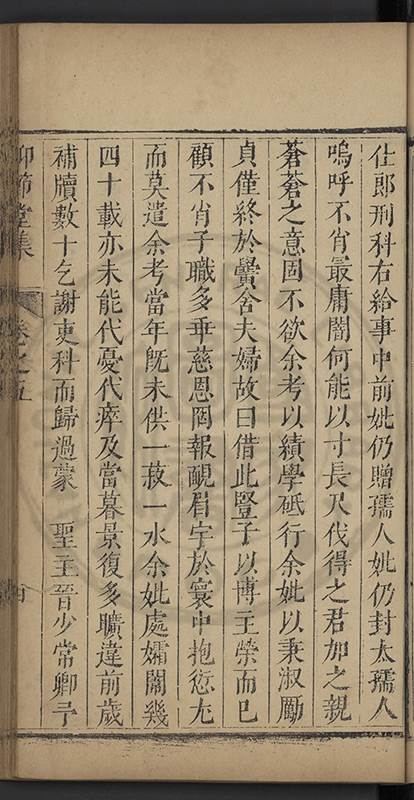 仕郎刑科右給事中前妣仍贈孺人妣仍封太孺人
嗚呼不肖最庸闇何能以寸長尺伐得之君加之親
蒼蒼之意固不欲余考以績學砥行余妣以秉淑勵
貞僅終於黌舍夫婦故曰借此豎子以博主榮而已
顧不肖子職多乖慈恩罔報靦眉宇於寰中抱愆尤
而莫遣余考當年旣未供一菽一水余妣處孀闈幾
四十載亦未能代憂代瘁及當暮景復多曠違前歲
補牘數十乞謝吏科而歸過蒙　聖主晉少常卿予
仰節堂集　卷之五